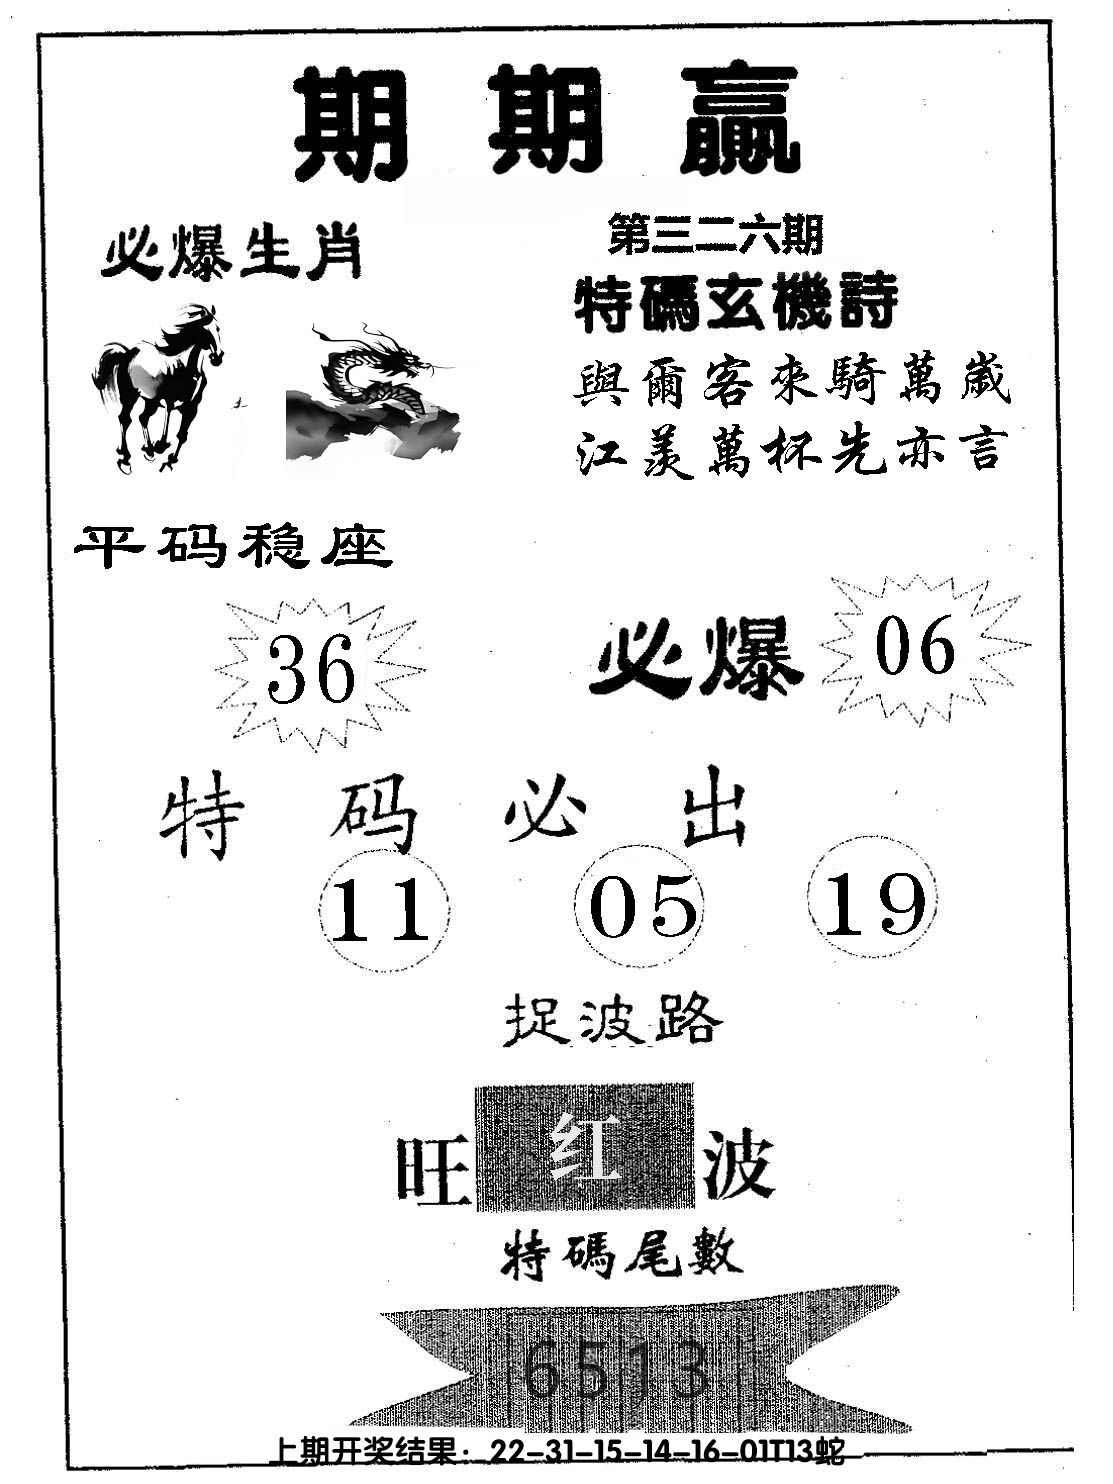 期期贏
必爆生肖
第三二六期
特碼玄機詩
與爾客來騎萬歲
江羨萬杯先亦言
平码稳座
36
必爆 06
特码必出
11 05 19
捉波路
旺红波
特碼尾數
6513
上期开奖结果：22-31-15-14-16-01T13蛇